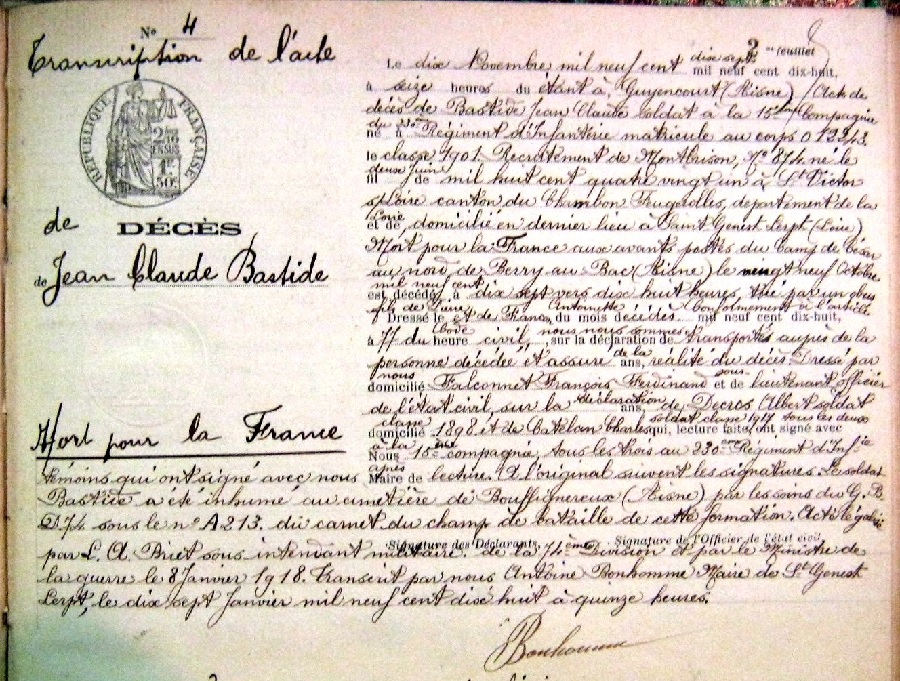 N° 4
Transcription de l'acte
de
DÉCÈS
de Jean Claude Bastide
Mort pour la France
RÉPUBLIQUE FRANÇAISE
2
feuillet
Le dix Novembre mil neuf cent dix sept mil neuf cent dix-huit,
à seize heures du étant à Guyencourt (Aisne) Acte de
décès de Bastide Jean Claude soldat à la 15ème Compagnie
du 23e né à Régiment d'Infanterie matricule au corps 012243.
le classe 1901 Recrutement de Montbrison, N° 814 né le
deux Juin fil de mil huit cent quatre vingt un à St Victor
s/Loire canton du Chambon Feugerolles, département de la
Loire et de domicilié en dernier lieu à Saint Genest Lerpt (Loire)
Mort pour la France aux avants postes du Camp de César
au nord de Berry au Bac (Aisne) le vingt neuf Octobre
mil neuf cent est décédé, à dix sept vers dix huit heures, tué par un obus
fils de Dressé le et de Franc Antoinette du mois décédés Conformément à l'article mil neuf cent dix-huit,
à 77 du Code heure civil, nous nous sommes sur la déclaration de transportés auprès de la
personne décédée et assuré de la ans, réalité du décès. Dressé par
nous domicilié Falconnet François Ferdinand sous et de lieutenant officier
de l'état civil, sur la déclaration ans, de Decros Albert soldat
classe domicilié 1898 et de Catelan Charles soldat classe 1917 tous les deux qui, lecture faite, ont signé avec
à la Nous 15ème compagnie, tous les trois au 23e Régiment d'Inf.ie
témoins qui ont signé avec nous après Maire de lecture. A l'original suivent les signatures. Le soldat
Bastide a été inhumé au cimetière de Bouffignereux (Aisne) par les soins du G. B.
D. 74 sous le n° A 213. du carnet du champ de bataille de cette formation. Acte légalisé
Signature des Déclarants, Signature de l'Officier de l'état civil,
par L. A. Briet sous intendant militaire, de la 74ème Division et par le Ministre de
la guerre le 8 Janvier 1918. Transcrit par nous Antoine Bonhomme Maire de St Genest
Lerpt, le dix sept Janvier mil neuf cent dix huit à quinze heures.
Bonhomme